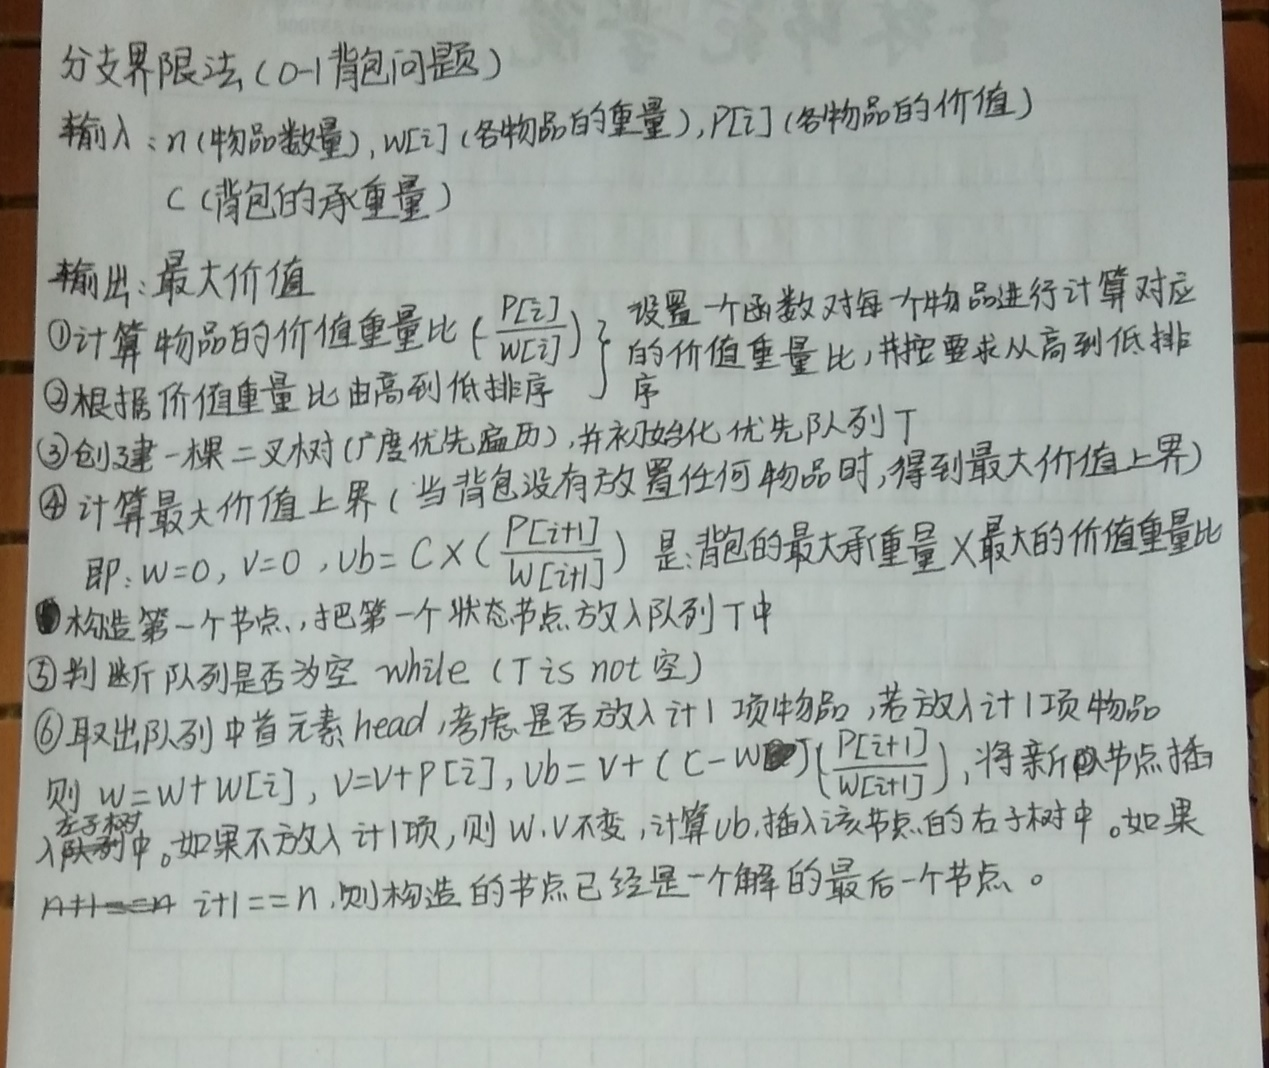 分支界限法(0-1背包问题)
输入:n(物品数量),W[i](各物品的重量),P[i](各物品的价值)
C(背包的承重量)
输出:最大价值
①计算物品的价值重量比(P[i]/W[i]) } 设置一个函数对每一个物品进行计算对应
的价值重量比,并按要求从高到低排
②根据价值重量比由高到低排序 序
③创建一棵二叉树(广度优先遍历),并初始化优先队列T
④计算最大价值上界(当背包没有放置任何物品时,得到最大价值上界)
即:W=0,V=0,Ub=C×(P[i+1]/W[i+1]) 是:背包的最大承重量×最大的价值重量比
构造第一个节点,把第一个状态节点放入队列T中
⑤判断队列是否为空 while(T is not 空)
⑥取出队列中首元素head,考虑是否放入计1项物品,若放入计1项物品
则W=W+W[i],V=V+P[i],Ub=V+(C-W)(P[i+1]/W[i+1]),将新节点插
入左子树中。如果不放入计1项,则W.V不变,计算Ub,插入该节点的右子树中。如果
n+1==n i+1==n,则构造的节点已经是一个解的最后一个节点。